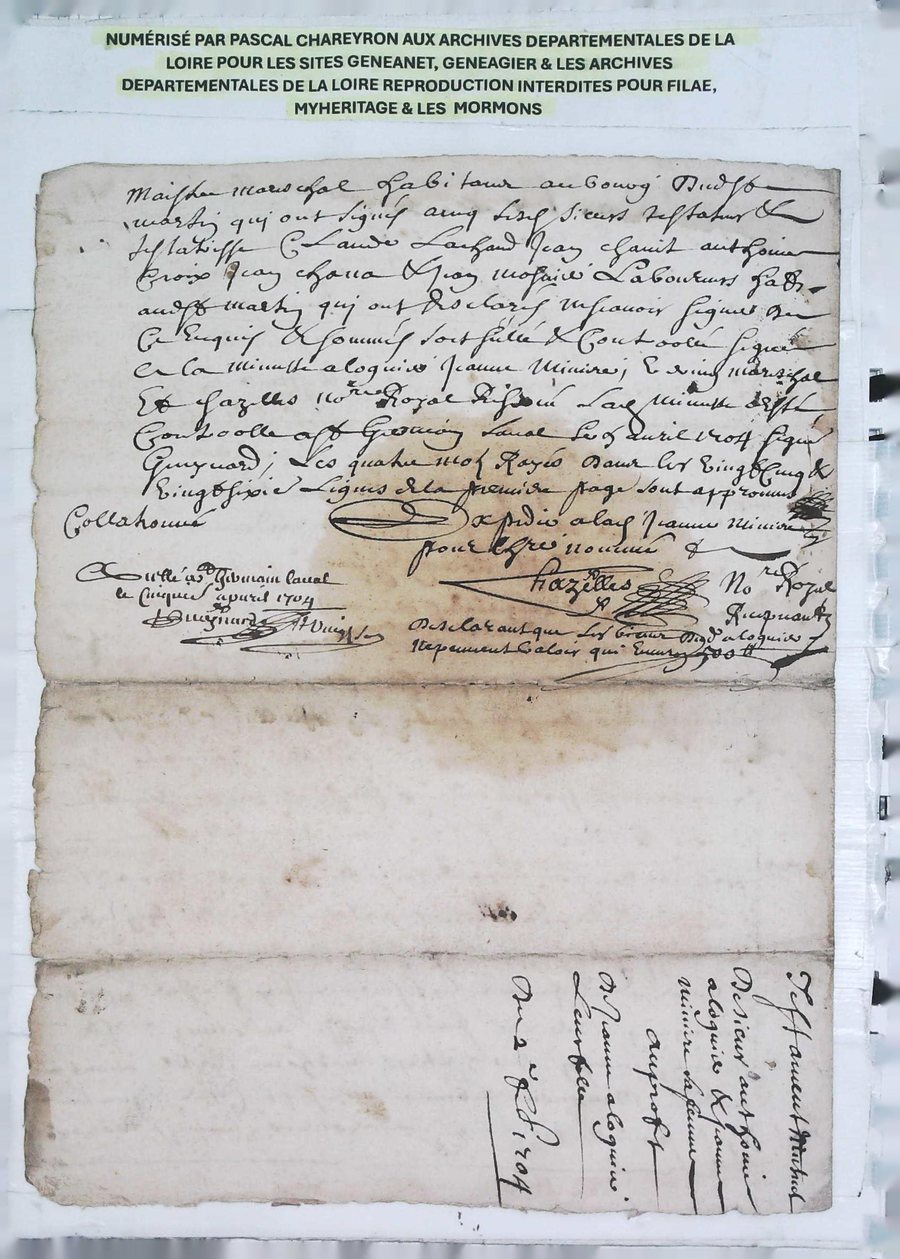 NUMÉRISÉ PAR PASCAL CHAREYRON AUX ARCHIVES DEPARTEMENTALES DE LA
LOIRE POUR LES SITES GENEANET, GENEAGIER & LES ARCHIVES
DEPARTEMENTALES DE LA LOIRE REPRODUCTION INTERDITES POUR FILAE,
MYHERITAGE & LES MORMONS
Maistre mareschal habitant au bourg dud St
martin qui ont signés avec lesd sieurs testateur &
testatrisse Claude Lachaud Jean anthoine
Croix Jean chana & Jean Laboureurs
aud St martin qui ont desclarés ne scavoir signer de
ce enquis & sommés soit sellé & Controollé signé
a la minutte aloquier Jeanne Miniere mareschal
Et chazelles no.re Royal la minutte a esté
Controollé a St Germain Laval le 5 avril 1704 signé
Guynard; Les quatre mos Rayés dans les vingt Cinq &
vingt sixie Lignes de la premiere page sont approuvés
Collationné Expedié a lad Jeanne Miniere
pour nommé &
Chazelles No.re Royal
Sellé a St Germain laval
le Cinquie apvril 1704
Guynard
Desclarant que les biens dud aloquier
ne peuvent valoir qui Environ 500 ll
Testament mutuel
De sieur anthoine
aloquier & Jeanne
Miniere sa femme
au proffit
De Jeanne aloquier
Leur fille
Du 2 1704